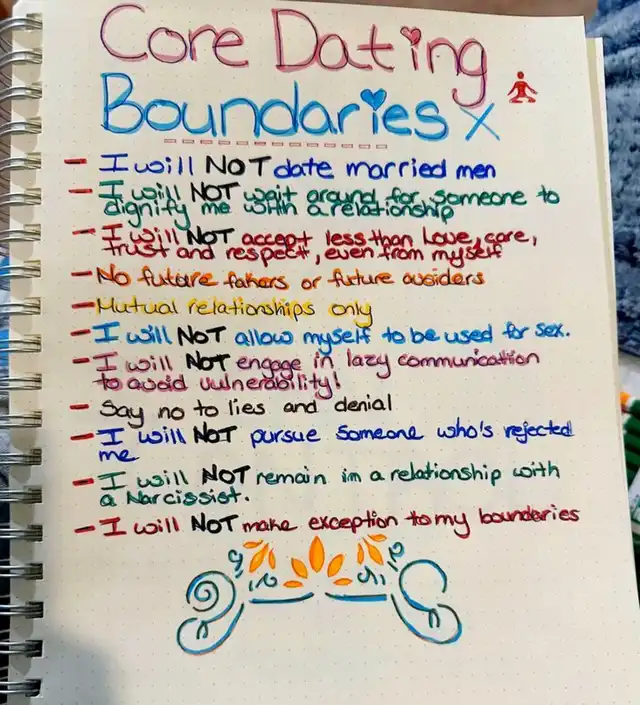 Core Dating
Boundaries x
- I will NOT date married men
- I will NOT wait around for someone to
dignify me with a relationship
- I will NOT accept less than love, care,
trust and respect, even from myself
- No future fakers or future avoiders
- Mutual relationships only
- I will NOT allow myself to be used for sex.
- I will NOT engage in lazy communication
to avoid vulnerability!
- Say no to lies and denial
- I will NOT pursue someone who's rejected
me
- I will NOT remain in a relationship with
a Narcissist.
- I will NOT make exception to my boundaries